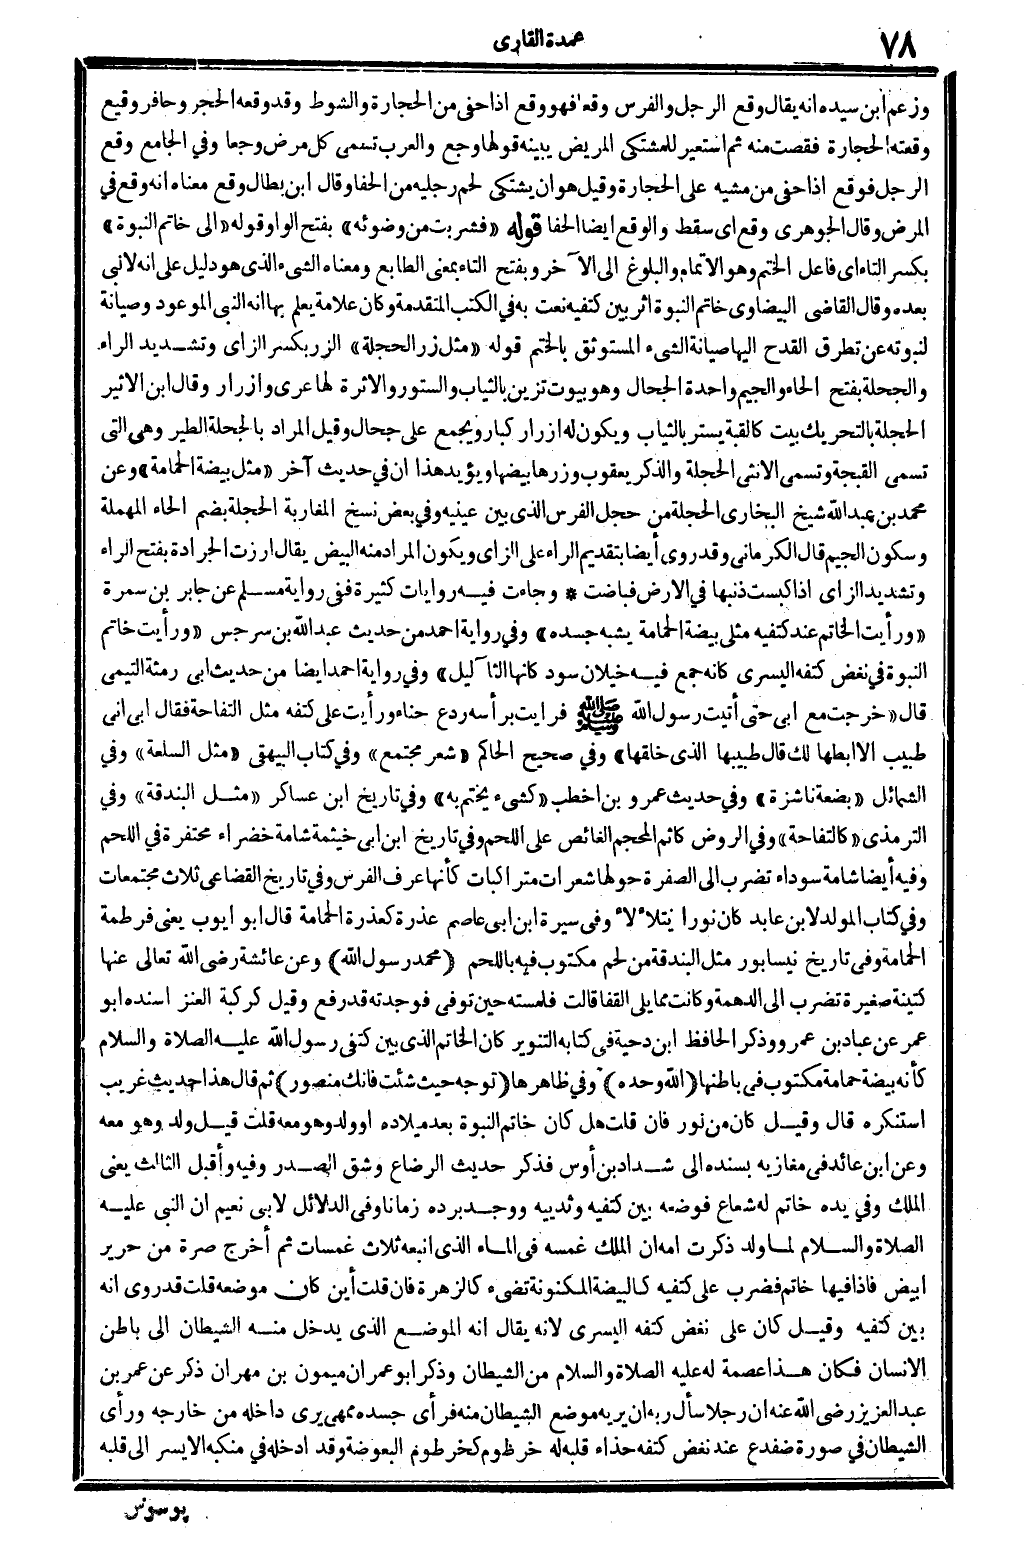 ٧٨
عمدة القارى
وزعم ابن سيده انه يقال وقع الرجل والفرس وقعا فهو وقع اذا حفى من الحجارة والشوط وقد وقعه الحجر وحافر وقيع
وقعته الحجارة فقصت منه ثم استعير للمشتكى المريض يبينه قولها وجع والعرب تسمى كل مرض وجعا وفي الجامع وقع
الرجل فوقع اذا حفى من مشيه على الحجارة وقيل هو ان يشتكى لحم رجليه من الحفا وقال ابن بطال وقع معناه انه وقع في
المرض وقال الجوهرى وقع اى سقط والوقع ايضا الحفا قوله «فشربت من وضوئه» بفتح الواو قوله «الى خاتم النبوة»
بكسر التاء اى فاعل الختم وهو الاتمام والبلوغ الى الآخر وبفتح التاء بمعنى الطابع ومعناه الشىء الذى هو دليل على انه لا نبى
بعده وقال القاضى البيضاوى خاتم النبوة اثر بين كتفيه نعت به في الكتب المتقدمة وكان علامة يعلم بها انه النبى الموعود وصيانة
لنبوته عن تطرق القدح اليها صيانة الشىء المستوثق بالختم قوله «مثل زر الحجلة» الزر بكسر الزاى وتشديد الراء
والجحلة بفتح الحاء والجيم واحدة الحجال وهو بيوت تزين بالثياب والستور والاثرة لها عرى وازرار وقال ابن الاثير
الحجلة بالتحريك بيت كالقبة يستر بالثياب ويكون له ازرار كبار ويجمع على جحال وقيل المراد بالجحلة الطير وهى التى
تسمى القبجة وتسمى الانثى الحجلة والذكر يعقوب وزرها بيضها ويؤيد هذا ان في حديث آخر «مثل بيضة الحمامة» وعن
محمد بن عبدالله شيخ البخارى الحجلة من حجل الفرس الذى بين عينيه وفي بعض نسخ المغاربة الحجلة بضم الحاء المهملة
وسكون الجيم قال الكرمانى وقد روى أيضا بتقديم الراء على الزاى ويكون المراد منه البيض يقال ارزت الجرادة بفتح الراء
وتشديد الزاى اذا كبست ذنبها في الارض فباضت * وجاءت فيه روايات كثيرة ففى رواية مسلم عن جابر بن سمرة
«ورأيت الخاتم عند كتفيه مثلى بيضة الحمامة يشبه جسده» وفي رواية احمد من حديث عبدالله بن سرجس «ورأيت خاتم
النبوة في نغض كتفه اليسرى كانه جمع فيه خيلان سود كانها الثآكيل» وفي رواية احمد ايضا من حديث ابى رمثة التيمى
قال «خرجت مع ابى حتى أتيت رسول الله ﷺ فرايت برأسه ردع حناء ورأيت على كتفه مثل التفاحة فقال ابى انى
طبيب الا ابطها لك قال طبيبها الذى خلقها» وفي صحيح الحاكم «شعر مجتمع» وفي كتاب البيهقى «مثل السلعة» وفي
الشمائل «بضعة ناشزة» وفي حديث عمرو بن اخطب «كشىء يختم به» وفي تاريخ ابن عساكر «مثل البندقة» وفي
الترمذى «كالتفاحة» وفي الروض كاثم المحجم الغائص على اللحم وفي تاريخ ابن ابى خيثمة شامة خضراء محتفرة في اللحم
وفيه أيضا شامة سوداء تضرب الى الصفرة حولها شعرات متراكبات كأنها عرف الفرس وفي تاريخ القضاعى ثلاث مجتمعات
وفي كتاب المولد لابن عابد كان نورا يتلألأ وفى سيرة ابن ابى عاصم عذرة كعذرة الحمامة قال ابو ايوب يعنى فرطمة
الحمامة وفى تاريخ نيسابور مثل البندقة من لحم مكتوب فيه باللحم (محمد رسول الله) وعن عائشة رضى الله تعالى عنها
كتينة صغيرة تضرب الى الدهمة وكانت مما يلى القفا قالت فلمسته حين توفى فوجدته قد رفع وقيل كركبة العنز اسنده ابو
عمر عن عباد بن عمرو وذكر الحافظ ابن دحية فى كتابه التنوير كان الخاتم الذى بين كتفى رسول الله عليه الصلاة والسلام
كأنه بيضة حمامة مكتوب فى باطنها (الله وحده) وفي ظاهرها (توجه حيث شئت فانك منصور) ثم قال هذا حديث غريب
استنكره قال وقيل كان من نور فان قلت هل كان خاتم النبوة بعد ميلاده او ولد وهو معه قلت قيل ولد وهو معه
وعن ابن عائد فى مغازيه بسنده الى شداد بن أوس فذكر حديث الرضاع وشق الصدر وفيه وأقبل الثالث يعنى
الملك وفي يده خاتم له شعاع فوضعه بين كتفيه وثدييه ووجد برده زمانا وفى الدلائل لابى نعيم ان النبى عليه
الصلاة والسلام لما ولد ذكرت امه ان الملك غمسه فى الماء الذى انبعه ثلاث غمسات ثم أخرج صرة من حرير
ابيض فاذا فيها خاتم فضرب على كتفيه كالبيضة المكنونة تضىء كالزهرة فان قلت أين كان موضعه قلت قد روى انه
بين كتفيه وقيل كان على نغض كتفه اليسرى لانه يقال انه الموضع الذى يدخل منه الشيطان الى باطن
الانسان فكان هذا عصمة له عليه الصلاة والسلام من الشيطان وذكر ابو عمران ميمون بن مهران ذكر عن عمر بن
عبد العزيز رضى الله عنه ان رجلا سأل ربه ان يريه موضع الشيطان منه فرأى جسده ممهى يرى داخله من خارجه ورأى
الشيطان في صورة ضفدع عند نغض كتفه حذاء قلبه له خرطوم كخرطوم البعوضة وقد ادخله في منكبه الايسر الى قلبه
يوسوس